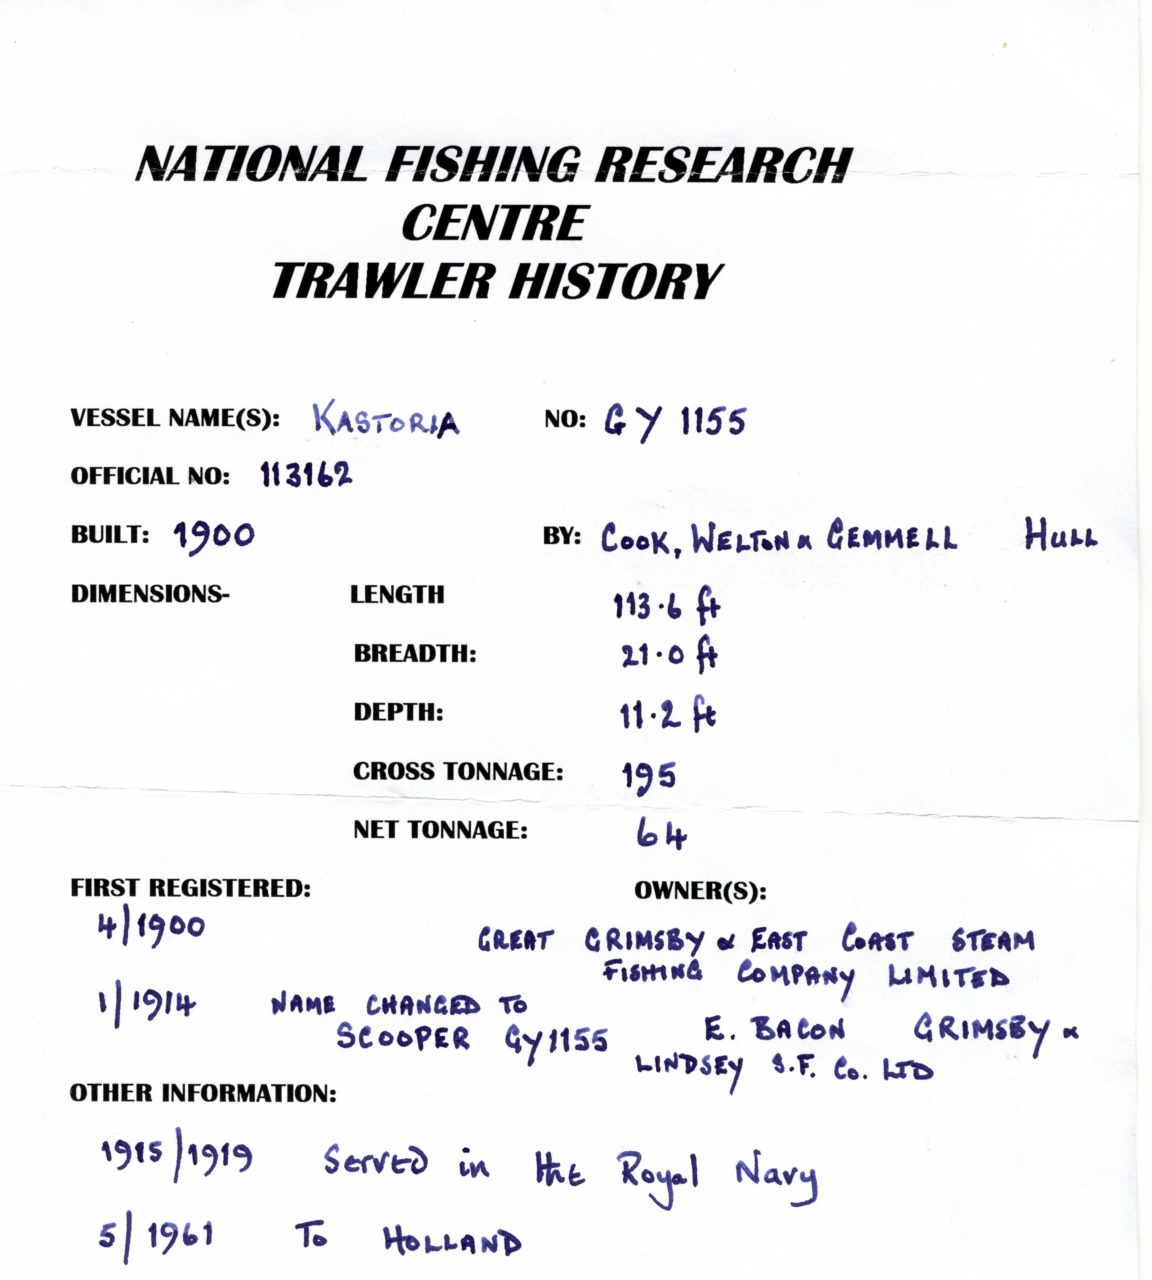 NATIONAL FISHING RESEARCH
CENTRE
TRAWLER HISTORY
VESSEL NAME(S): KASTORIA NO: GY 1155
OFFICIAL NO: 113162
BUILT: 1900 BY: COOK, WELTON & GEMMELL HULL
DIMENSIONS- LENGTH 113.6 ft
BREADTH: 21.0 ft
DEPTH: 11.2 ft
CROSS TONNAGE: 195
NET TONNAGE: 64
FIRST REGISTERED: OWNER(S):
4/1900 GREAT GRIMSBY & EAST COAST STEAM
FISHING COMPANY LIMITED
1/1914 NAME CHANGED TO
SCOOPER GY1155 E. BACON GRIMSBY &
LINDSEY S.F. Co. LTD
OTHER INFORMATION:
1915/1919 Served in the Royal Navy
5/1961 To HOLLAND